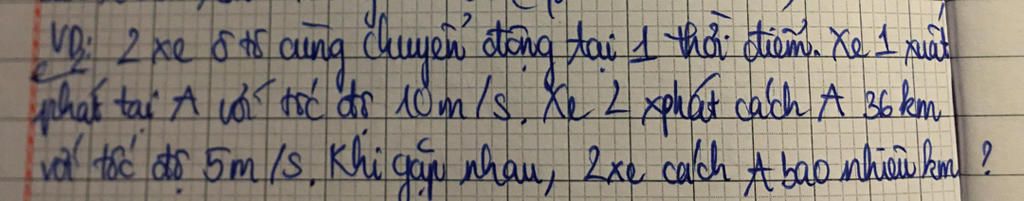 VD: 2 xe ô tô cùng chuyển động tại 1 thời điểm. Xe 1 xuất
phát tại A với tốc độ 10m/s. Xe 2 xphát cách A 36 km
với tốc độ 5m/s. Khi gặp nhau, 2xe cách A bao nhiêu km ?